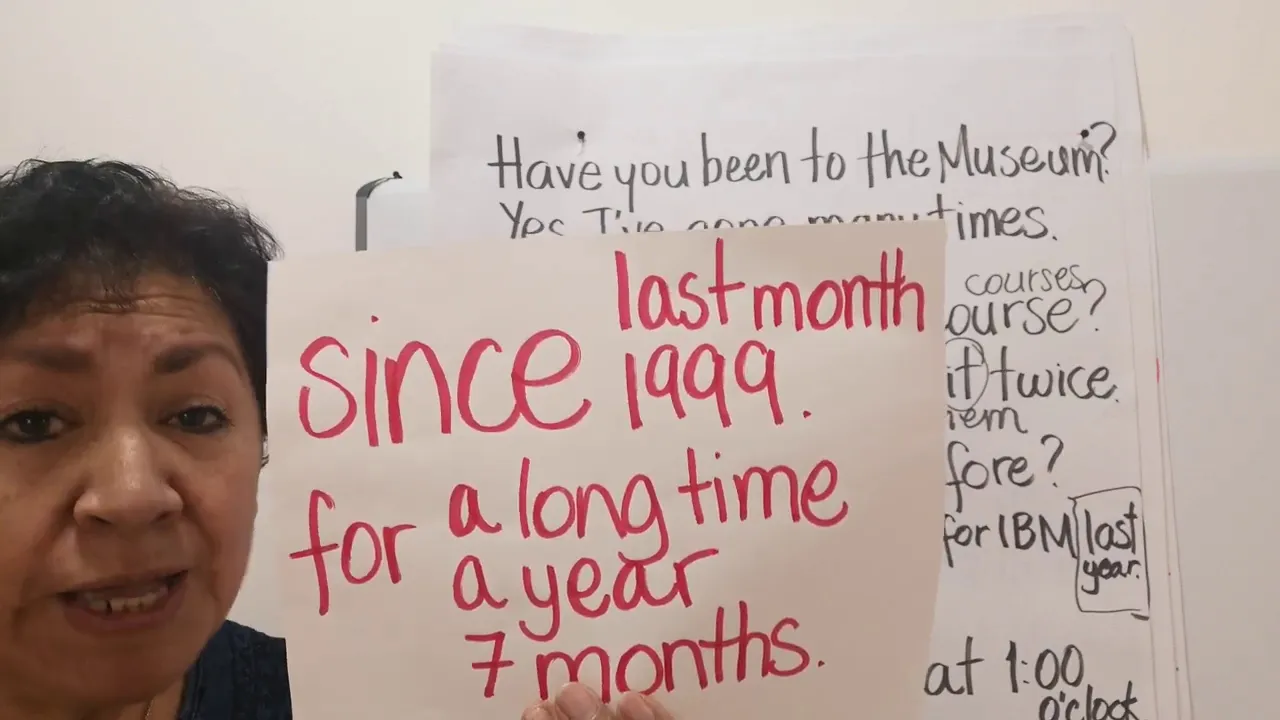 Have you been to the Museum?
Yes I've gone many times.
since last month
1999.
for a long time
a year
7 months.
courses
ourse?
it twice.
fore?
for IBM last
year.
at 1:00
o'clock